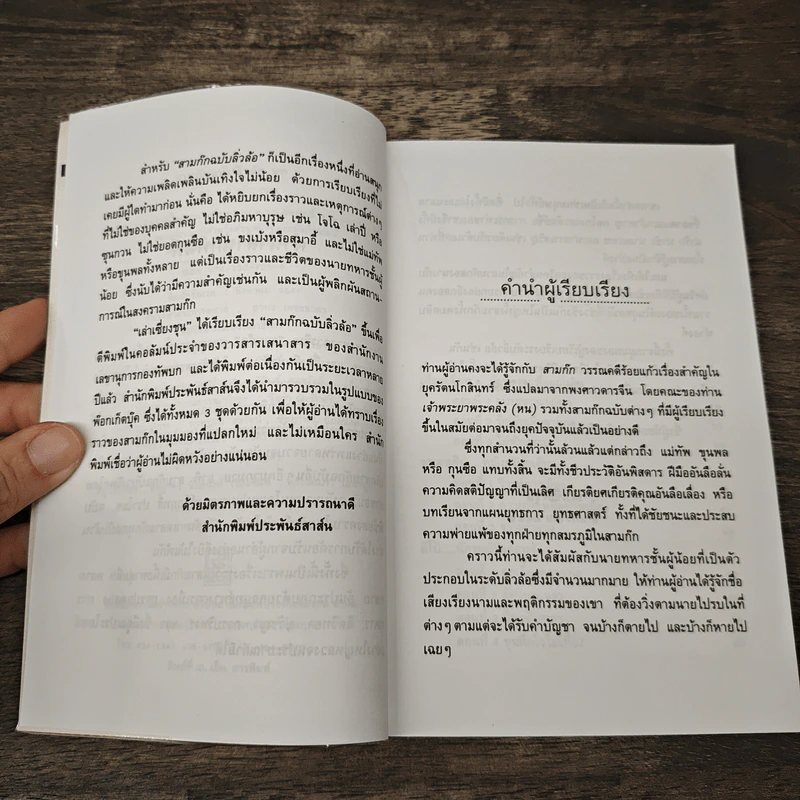 สำหรับ “สามก๊กฉบับลิ่วล้อ” ก็เป็นอีกเรื่องหนึ่งที่อ่านสนุก
และให้ความเพลิดเพลินบันเทิงใจไม่น้อย ด้วยการเรียบเรียงที่ไม่
เคยมีผู้ใดทำมาก่อน นั่นคือ ได้หยิบยกเรื่องราวและเหตุการณ์ต่างๆ
ที่ไม่ใช่ของบุคคลสำคัญ ไม่ใช่อภิมหาบุรุษ เช่น โจโฉ เล่าปี่ หรือ
ซุนกวน ไม่ใช่ยอดกุนซือ เช่น ขงเบ้งหรือสุมาอี้ และไม่ใช่แม่ทัพ
หรือขุนพลทั้งหลาย แต่เป็นเรื่องราวและชีวิตของนายทหารชั้นผู้
น้อย ซึ่งนับได้ว่ามีความสำคัญเช่นกัน และเป็นผู้พลิกผันสถาน-
การณ์ในสงครามสามก๊ก
“เล่าเซี่ยงชุน” ได้เรียบเรียง “สามก๊กฉบับลิ่วล้อ” ขึ้นเพื่อ
ตีพิมพ์ในคอลัมน์ประจำของวารสารเสนาสาร ของสำนักงาน
เลขานุการกองทัพบก และได้พิมพ์ต่อเนื่องกันเป็นระยะเวลาหลาย
ปีแล้ว สำนักพิมพ์ประพันธ์สาส์นจึงได้นำมารวบรวมในรูปแบบของ
พ็อกเก็ตบุ๊ค ซึ่งได้ทั้งหมด 3 ชุดด้วยกัน เพื่อให้ผู้อ่านได้ทราบเรื่อง
ราวของสามก๊กในมุมมองที่แปลกใหม่ และไม่เหมือนใคร สำนัก
พิมพ์เชื่อว่าผู้อ่านไม่ผิดหวังอย่างแน่นอน
ด้วยมิตรภาพและความปรารถนาดี
สำนักพิมพ์ประพันธ์สาส์น
คำนำผู้เรียบเรียง
ท่านผู้อ่านคงจะได้รู้จักกับ สามก๊ก วรรณคดีร้อยแก้วเรื่องสำคัญใน
ยุครัตนโกสินทร์ ซึ่งแปลมาจากพงศาวดารจีน โดยคณะของท่าน
เจ้าพระยาพระคลัง (หน) รวมทั้งสามก๊กฉบับต่างๆ ที่มีผู้เรียบเรียง
ขึ้นในสมัยต่อมาจนถึงยุคปัจจุบันแล้วเป็นอย่างดี
ซึ่งทุกสำนวนที่ว่านั้นล้วนแล้วแต่กล่าวถึง แม่ทัพ ขุนพล
หรือ กุนซือ แทบทั้งสิ้น จะมีทั้งชีวประวัติอันพิสดาร ฝีมืออันลือลั่น
ความคิดสติปัญญาที่เป็นเลิศ เกียรติยศเกียรติคุณอันลือเลื่อง หรือ
บทเรียนจากแผนยุทธการ ยุทธศาสตร์ ทั้งที่ได้ชัยชนะและประสบ
ความพ่ายแพ้ของทุกฝ่ายทุกสมรภูมิในสามก๊ก
คราวนี้ท่านจะได้สัมผัสกับนายทหารชั้นผู้น้อยที่เป็นตัว
ประกอบในระดับลิ่วล้อซึ่งมีจำนวนมากมาย ให้ท่านผู้อ่านได้รู้จักชื่อ
เสียงเรียงนามและพฤติกรรมของเขา ที่ต้องวิ่งตามนายไปรบในที่
ต่างๆ ตามแต่จะได้รับคำบัญชา จนบ้างก็ตายไป และบ้างก็หายไป
เฉยๆ